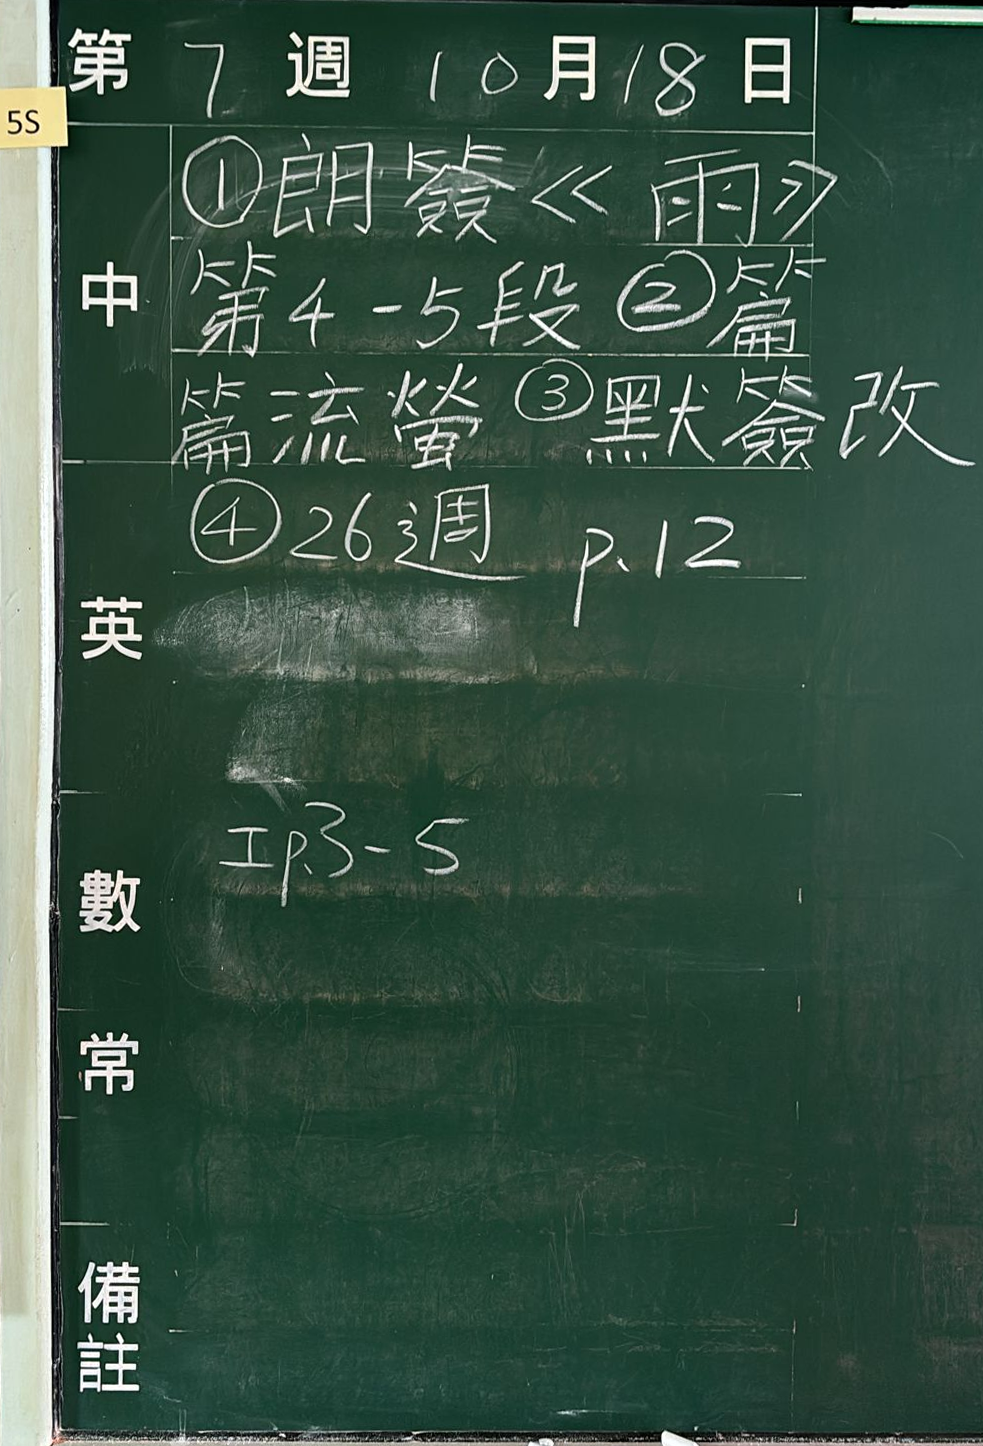 第 7 週 10 月 18 日
5S
中
①朗簽《雨》
第4-5段 ②篇
篇流螢 ③默簽改
④26週 p.12
英
工p.3-5
數
常
備註